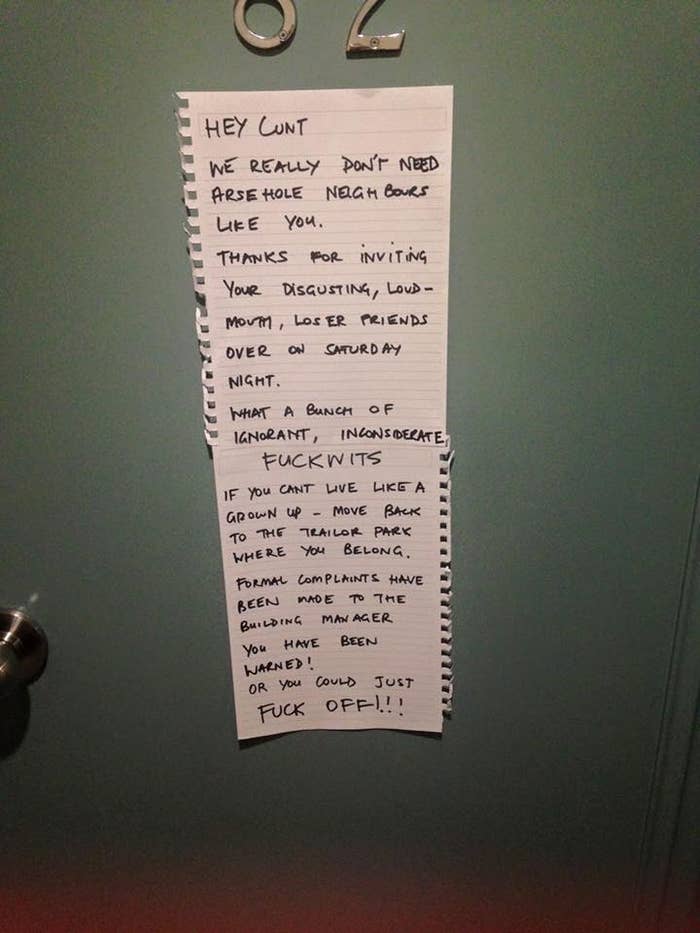 62
HEY CUNT
WE REALLY DON'T NEED
ARSEHOLE NEIGHBOURS
LIKE YOU.
THANKS FOR INVITING
YOUR DISGUSTING, LOUD-
MOUTH, LOSER FRIENDS
OVER ON SATURDAY
NIGHT.
WHAT A BUNCH OF
IGNORANT, INCONSIDERATE,
FUCKWITS
IF YOU CANT LIVE LIKE A
GROWN UP - MOVE BACK
TO THE TRAILOR PARK
WHERE YOU BELONG.
FORMAL COMPLAINTS HAVE
BEEN MADE TO THE
BUILDING MANAGER
YOU HAVE BEEN
WARNED!
OR YOU COULD JUST
FUCK OFF!!!